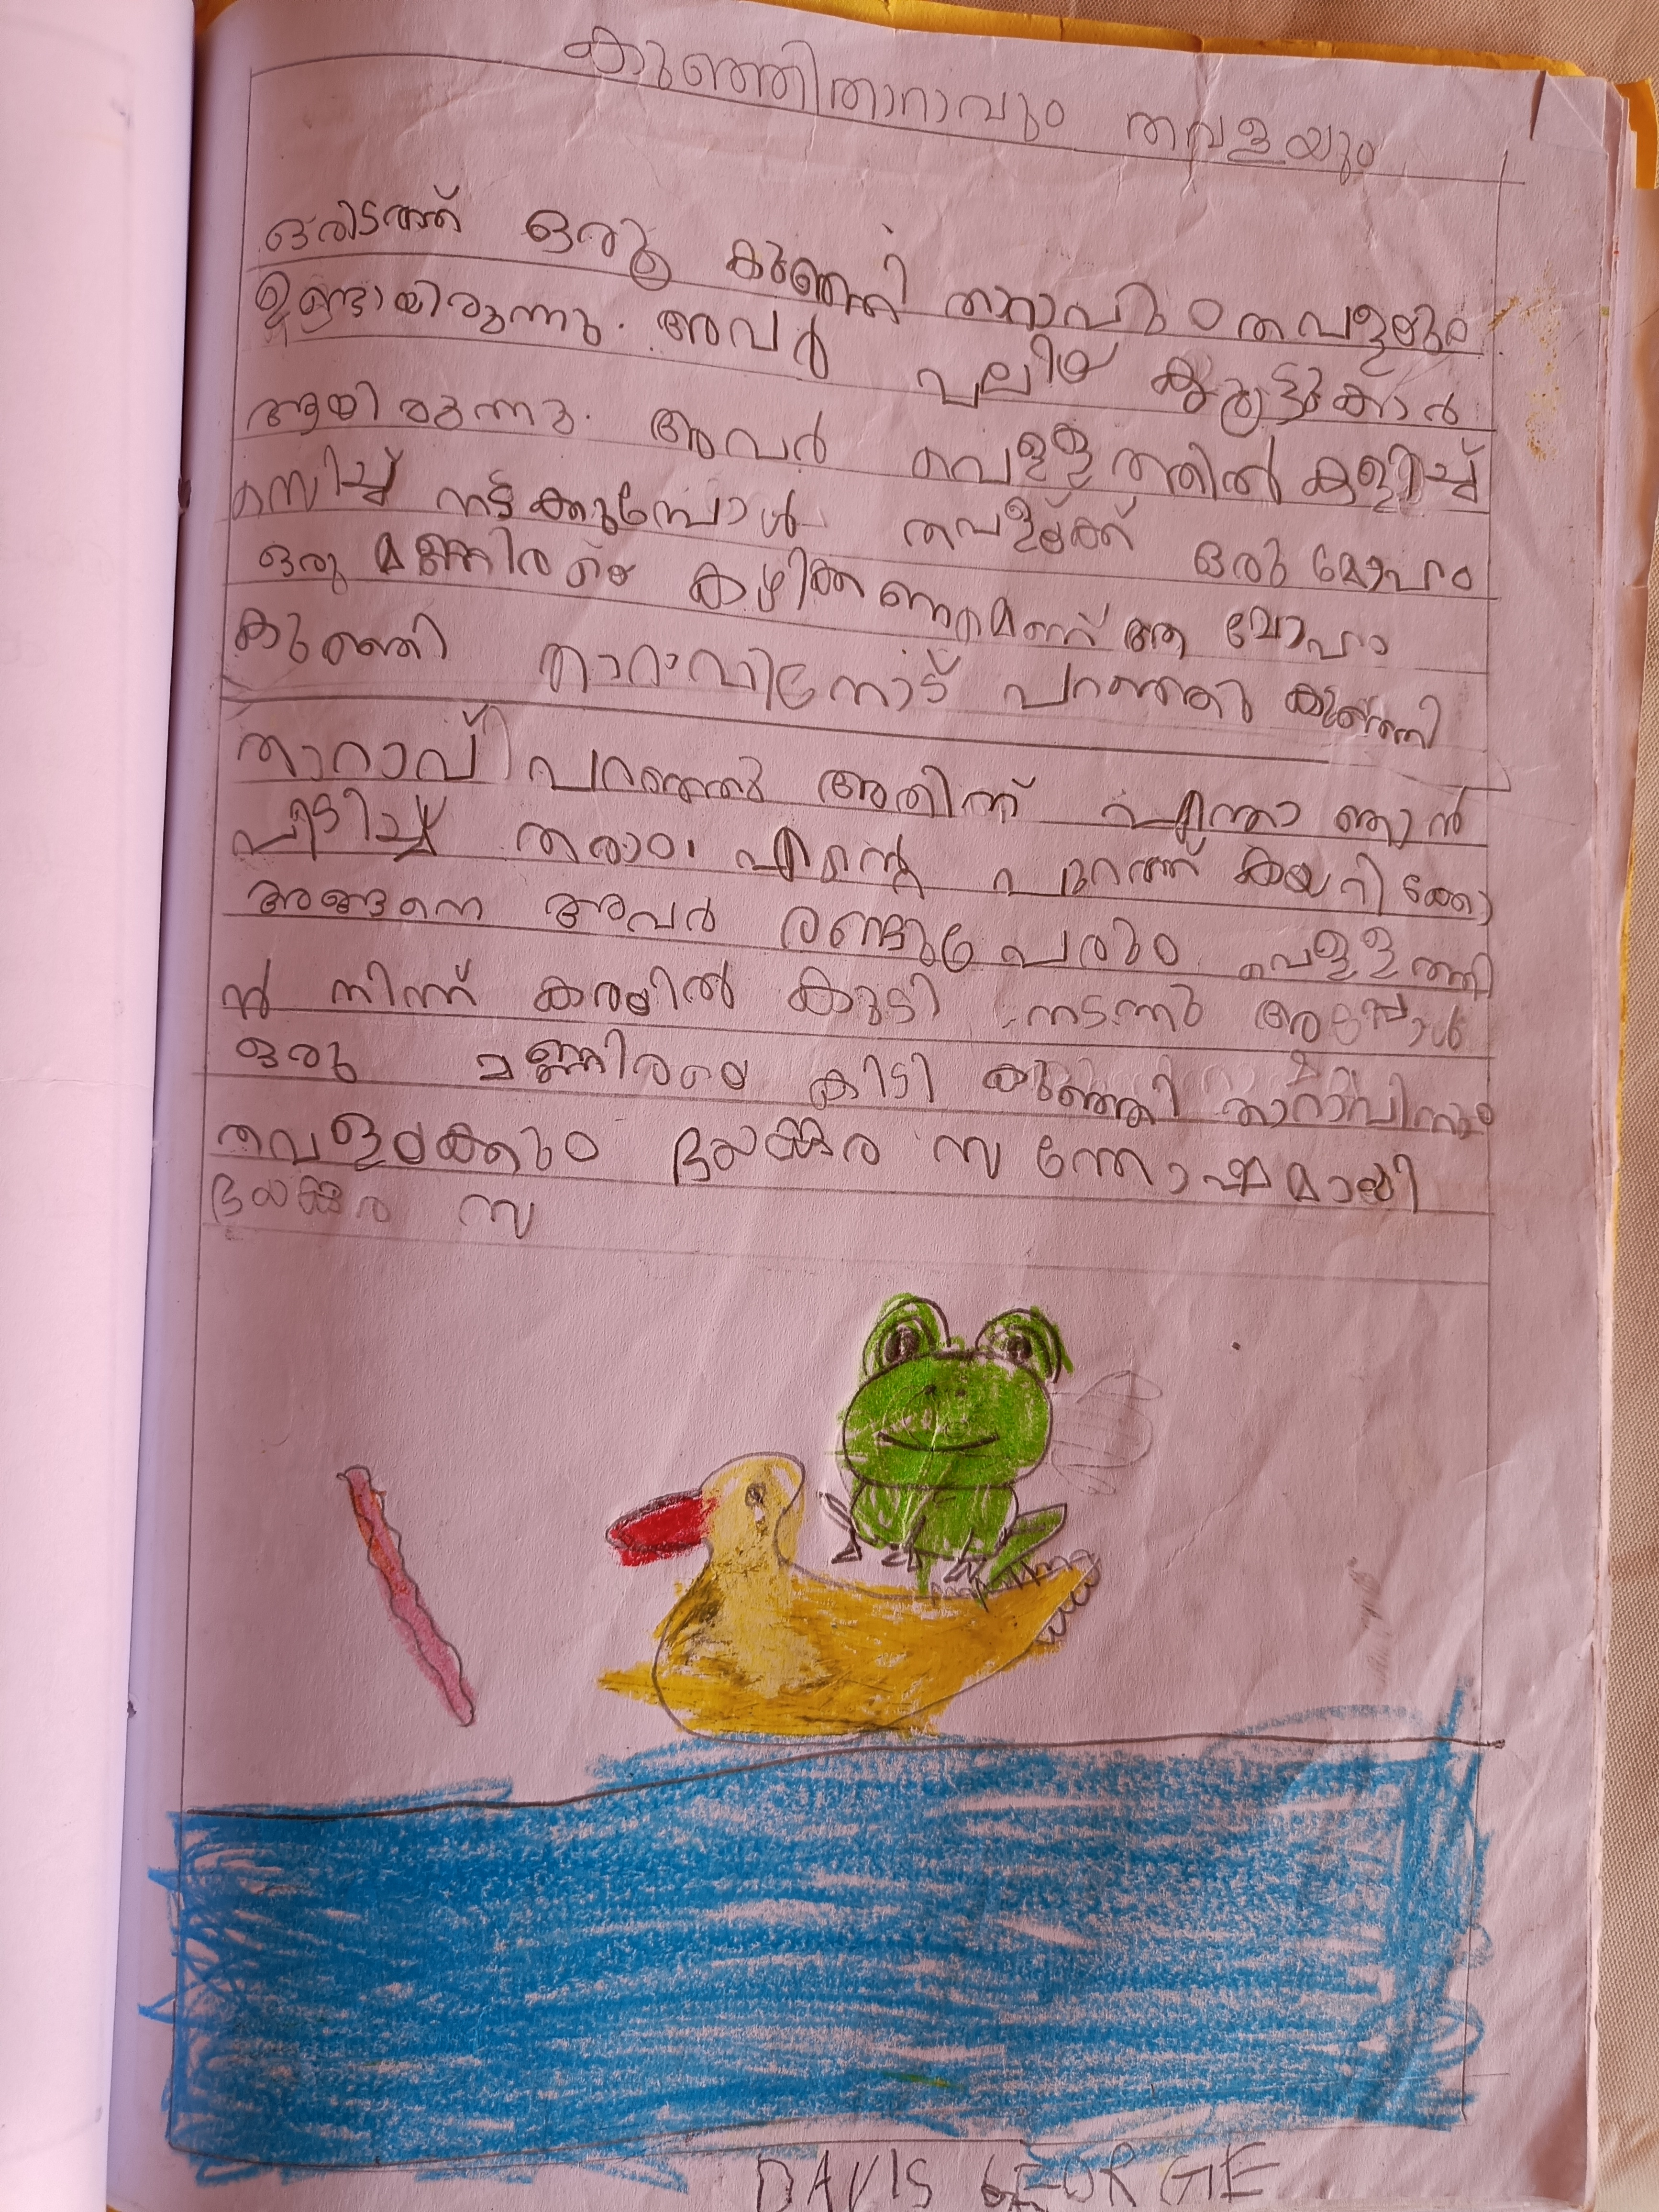 കുഞ്ഞിതാറാവും തവളയും
ഒരിടത്ത് ഒരു കുഞ്ഞി താറാവും തവളളയും
ഉണ്ടായിരുന്നു. അവർ പലിയ കുട്ടുകാർ
ആയിരുന്നു. അവർ വെള്ളത്തിൽ കളിച്ച്
രസിച്ച് നടക്കുമ്പോൾ തവളയ്ക്ക് ഒരു മോഹം
ഒരു മണ്ണിരയെ കഴിക്കണമെന്ന് ആ മോഹം
കുഞ്ഞി താറാവിനോട് പറഞ്ഞു കുഞ്ഞി
താറാവ് പറഞ്ഞു അതിന് എന്താ ഞാൻ
പിടിച്ച് തരാം. എന്റെ പുറത്ത് കയറിക്കോ
അങ്ങനെ അവർ രണ്ടുപേരും വെള്ളത്തി
ൽ നിന്ന് കരയിൽ കുടി നടന്നു അപ്പോൾ
ഒരു മണ്ണിരയെ കിട്ടി കുഞ്ഞി താറാവിനും
തവളയക്കും ഭയങ്കര സന്തോഷമായി
ഭയങ്കര സ
DAVIS GEORGIE